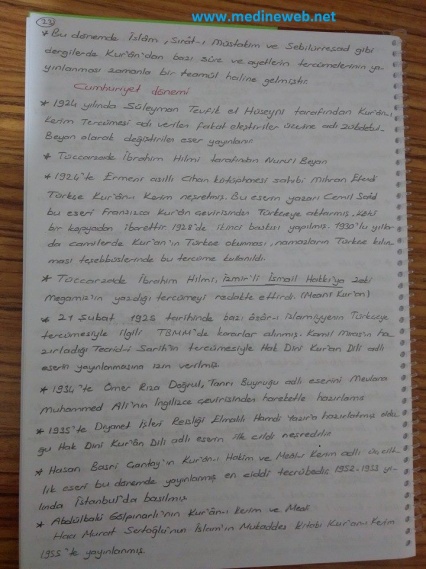 www.medineweb.net
23
* Bu dönemde İslâm, Sırât-ı Müstakim ve Sebilürreşad gibi
dergilerde Kur'ân'dan bazı sûre ve ayetlerin tercümelerinin ya-
yınlanması zamanla bir teamül haline gelmiştir.
Cumhuriyet dönemi
* 1924 yılında Süleyman Tevfik el Hüseyni tarafından Kur'ân-ı
Kerim Tercümesi adı verilen fakat eleştiriler üzerine adı
Beyan olarak değiştirilen eser yayınlanır
* Tüccarzade İbrahim Hilmi tarafından Nurul Beyan
* 1926'te Ermeni asıllı Cihan kütüphanesi sahibi Mihran Efendi
Türkçe Kur'ân-ı Kerim neşretmiş. Bu eserin yazarı Cemil Said
bu eseri Fransızca Kur'ân çevirisinden Türkçeye aktarmış,
bir kopyadan ibarettir. 1928'de ikinci baskısı yapılmış. 1930'lu yıllar-
da camilerde Kur'an'ın Türkçe okunması, namazların Türkçe kılın-
ması teşebbüslerinde bu tercüme kullanıldı.
* Tüccarzade İbrahim Hilmi, İzmir'li İsmail Hakkı'ya Zeki
Megamiz'in yazdığı tercümeyi redakte ettirdi. (Meani Kur'an)
* 21 Şubat 1925 tarihinde bazı âsâr-ı islamiyyenin Türkçeye
tercümesiyle ilgili TBMM'de kararlar alınmış. Kamil Miras'ın ha-
zırladığı Tecrid-i Sarih'in tercümesiyle Hak Dini Kur'an Dili adlı
eserin yayınlanmasına izin verilmiş
* 1934'te Ömer Rıza Doğrul, Tanrı Buyruğu adlı eserini Mevlana
Muhammed Ali'nin İngilizce çevirisinden hareketle hazırlamış
* 1935'te Diyanet İşleri Reisliği Elmalılı Hamdi Yazır'a hazırlatmış oldu-
ğu Hak Dini Kur'ân Dili adlı eserin ilk cildi neşredilir.
* Hasan Basri Çantay'ın Kur'ân-ı Hakîm ve Meâl-i Kerim adlı üç cilt-
lik eseri bu dönemde yayınlanmış en ciddi tecrübedir. 1952-1953 yı-
lında İstanbul'da basılmış
* Abdülbaki Gölpınarlı'nın Kur'ân-ı Kerim ve Meali
Hacı Murat Sertoğlu'nun İslam'ın Mukaddes Kitabı Kur'an-ı Kerim
1955'te yayınlanmış.